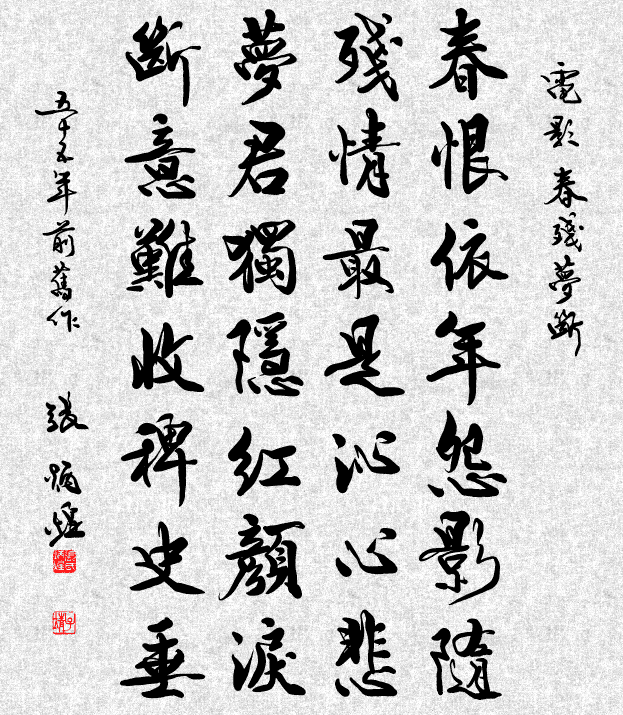 電影 春殘夢斷
春恨依年怨影隨
殘情最是沁心悲
夢君獨隱紅顏淚
斷意難收稗史垂
五十五年前舊作
張炳煌